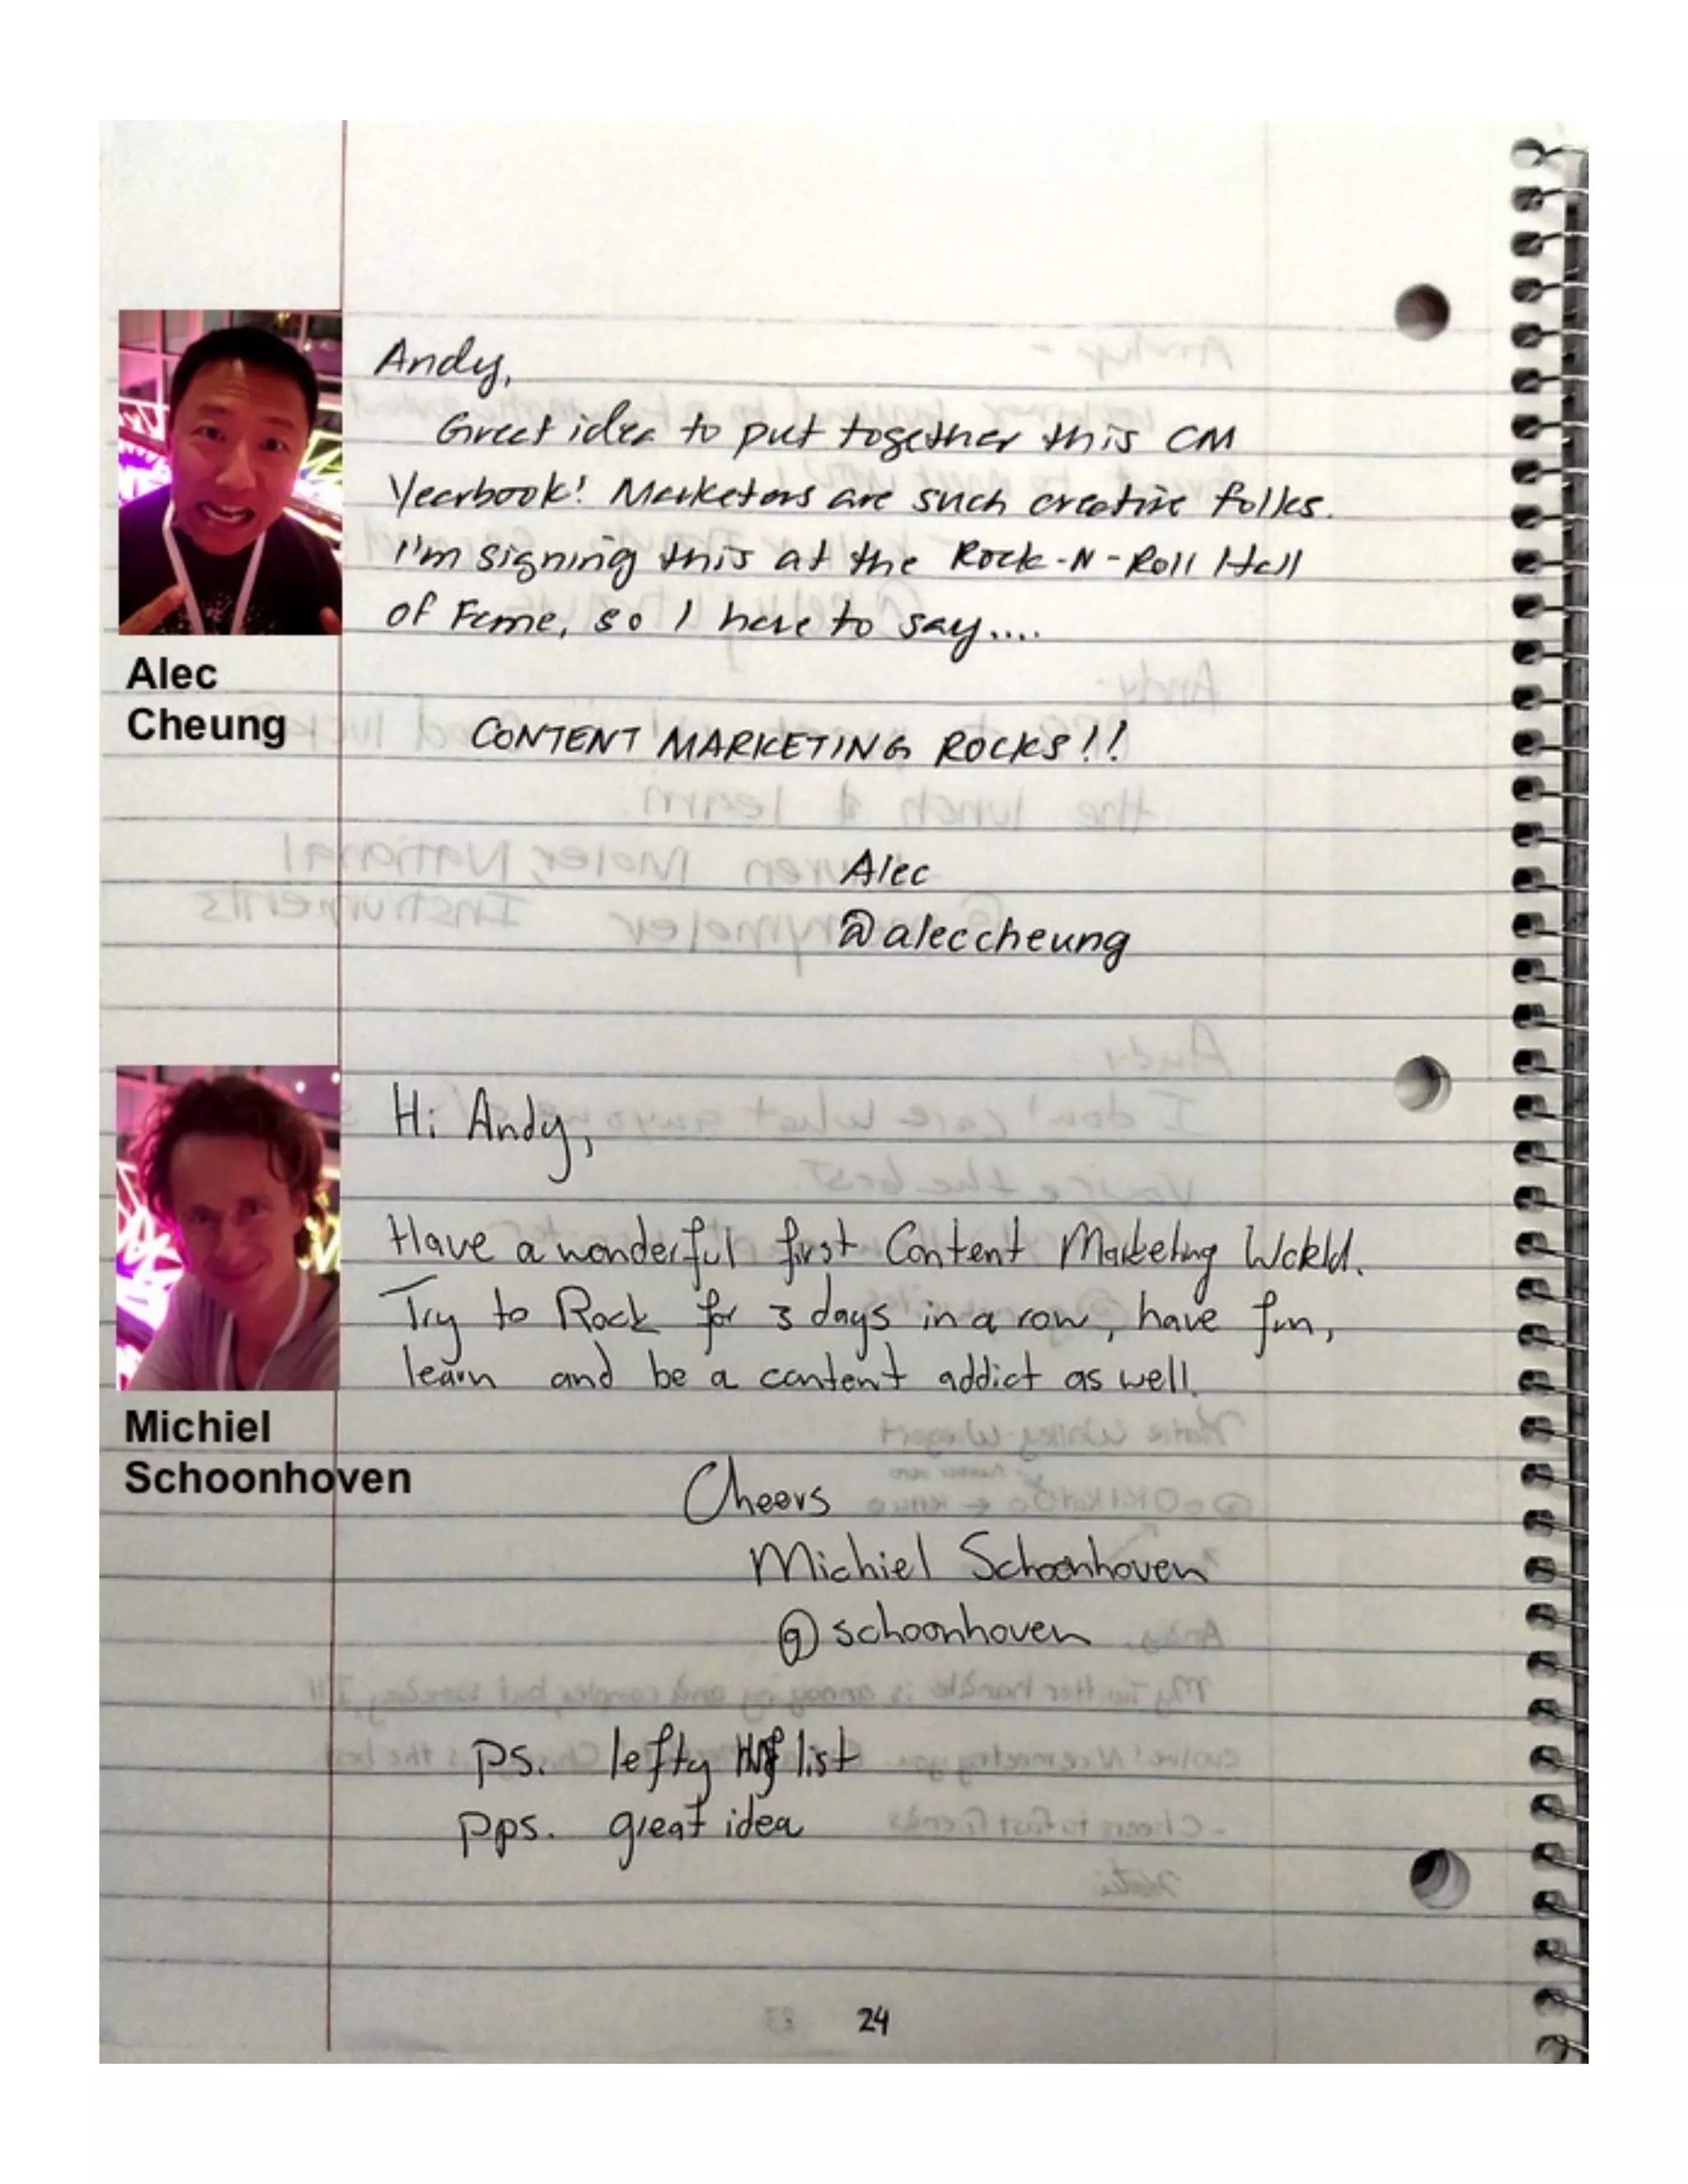 Andy,
Great idea to put together this CM
Yearbook! Marketers are such creative folks.
I'm signing this at the Rock-N-Roll Hall
of Fame, so I have to say....
Alec
Cheung
CONTENT MARKETING ROCKS!!
Alec
@aleccheung
Hi Andy,
Have a wonderful first Content Marketing World.
Try to Rock for 3 days in a row, have fun,
learn and be a content addict as well.
Michiel
Schoonhoven
Cheers
Michiel Schoonhoven
@schoonhoven
ps. lefty list
pps. great idea
24